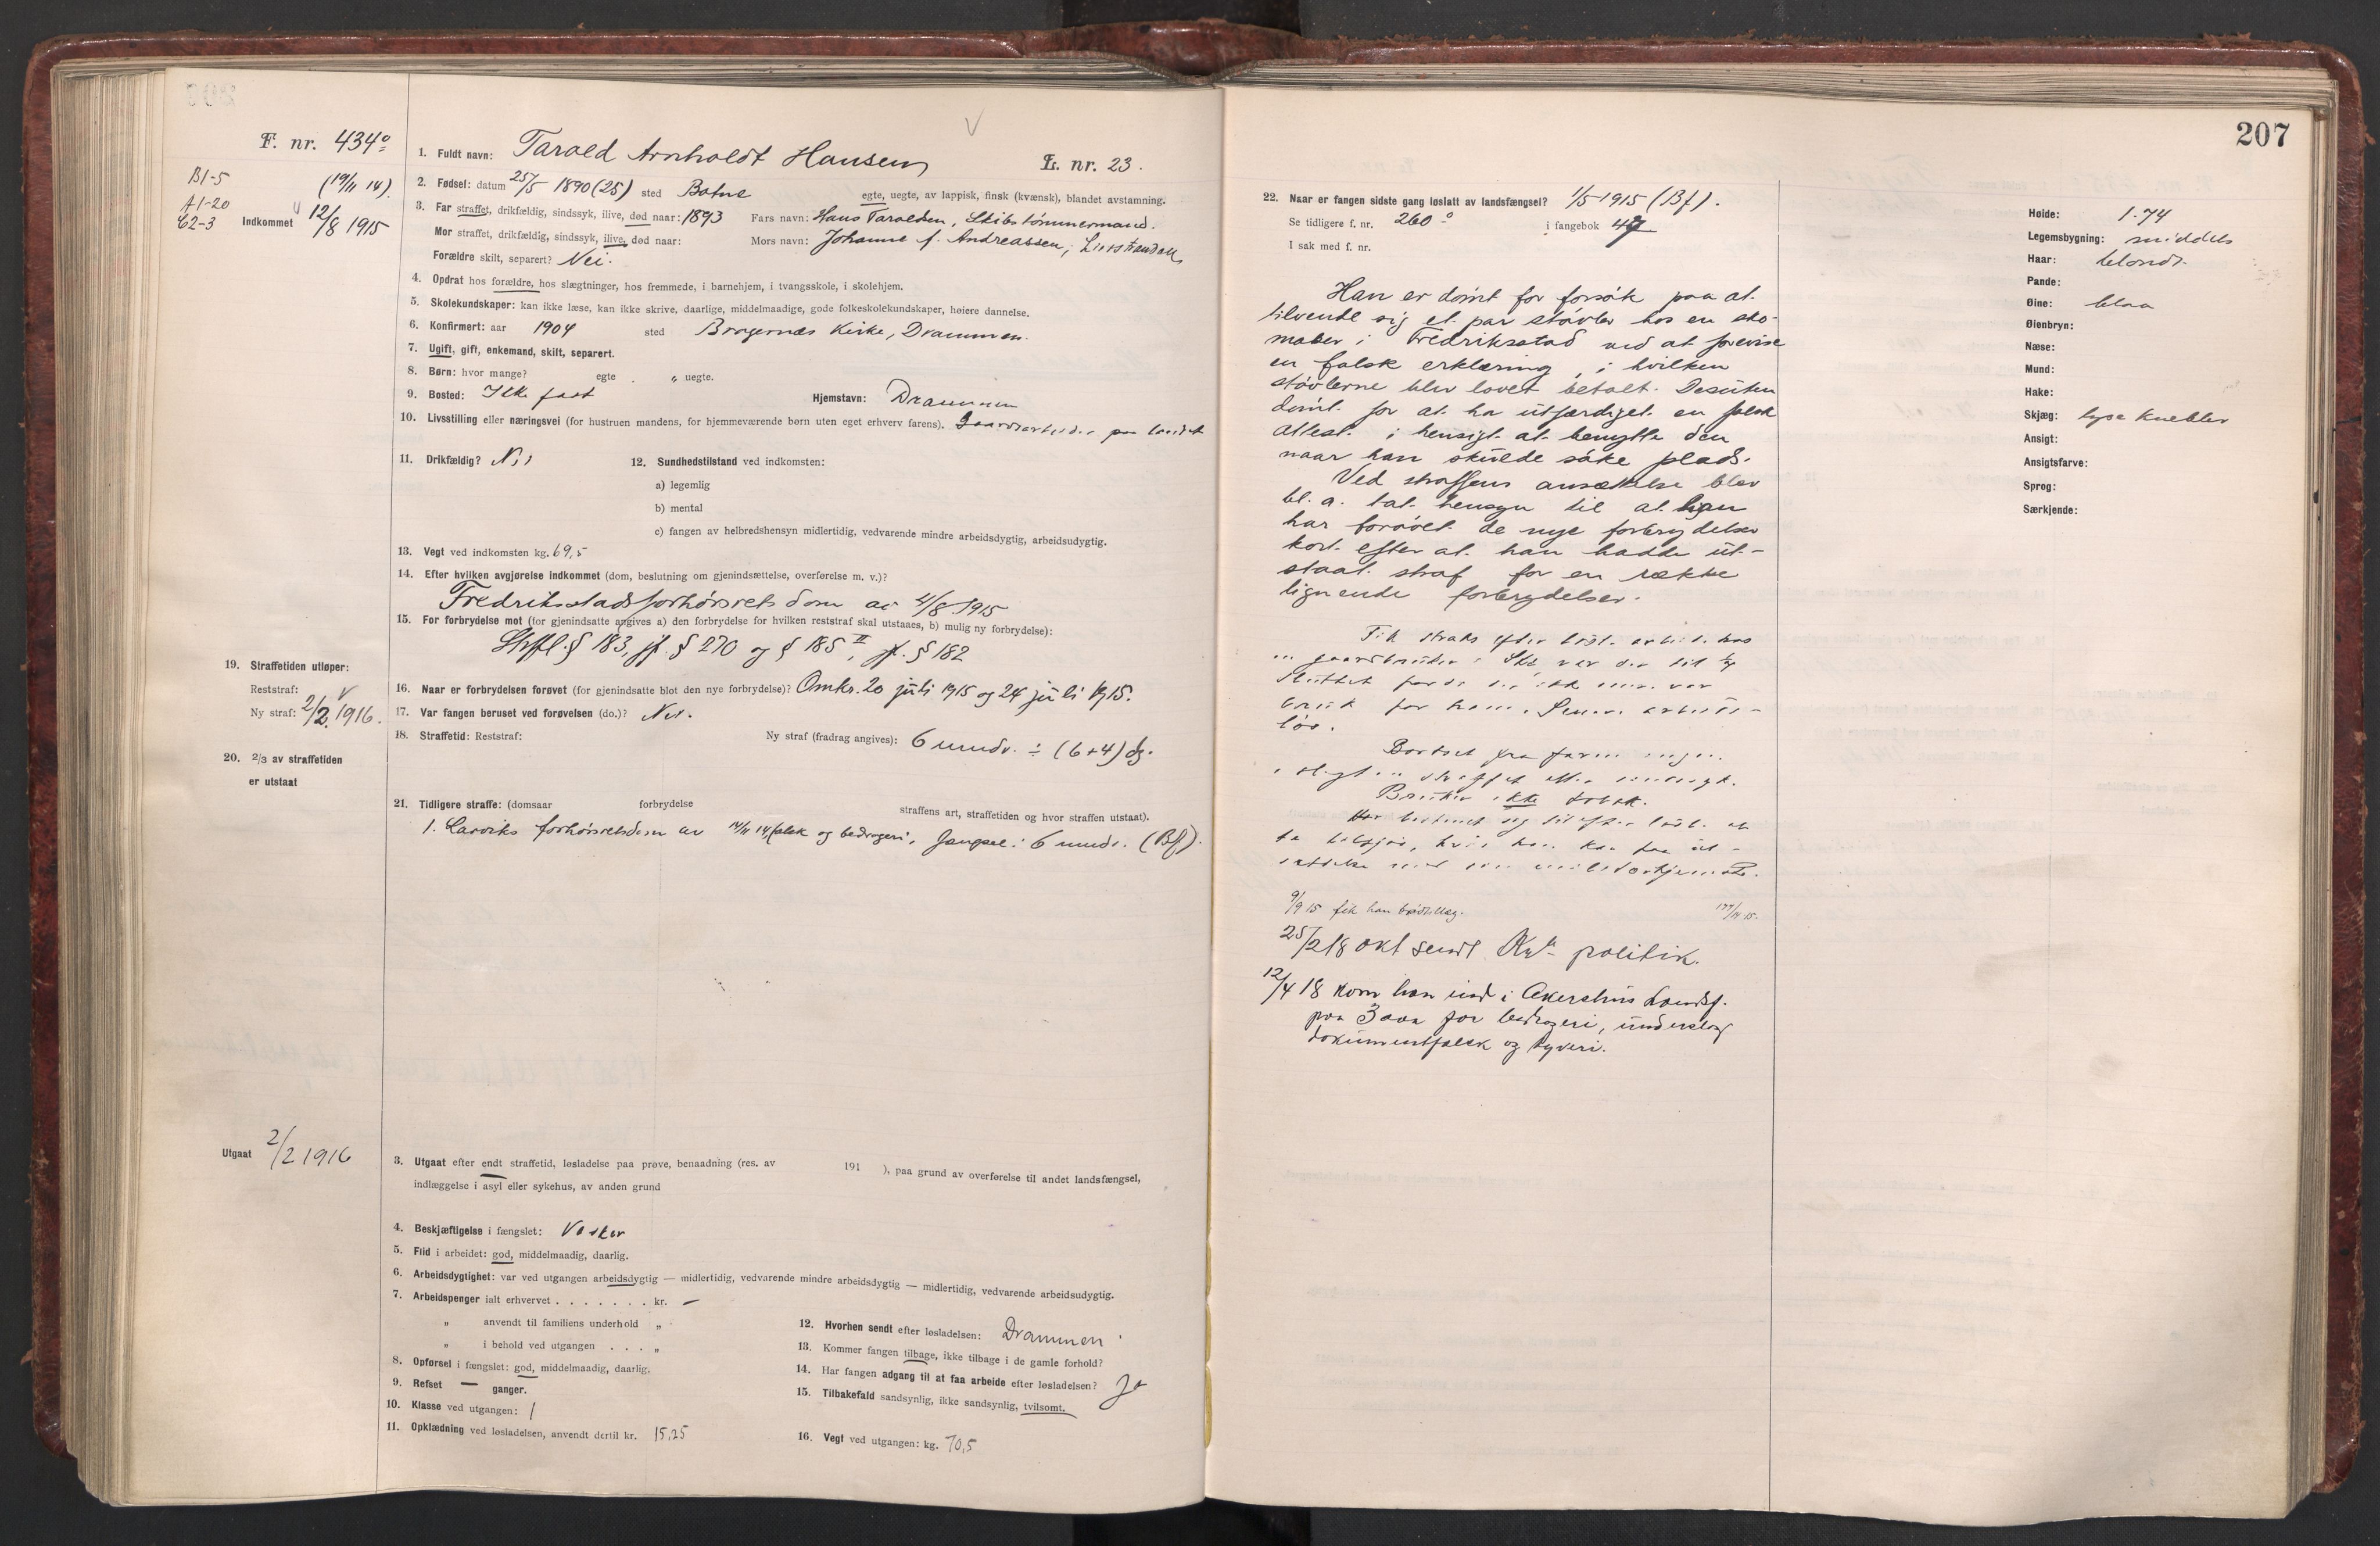 F. nr. 434º
B1-5
(19/11 14).
A1-20
C2-3
Indkommet 12/8 1915
1. Fuldt navn: Tarald Arnholdt Hansen
L. nr. 23.
2. Fødsel: datum 25/5 1890 (25) sted Botne
egte, uegte, av lappisk, finsk (kvænsk), blandet avstamning.
3. Far straffet, drikfældig, sindssyk, ilive, død naar: 1893 Fars navn: Hans Taraldsen, Skibstømmermand.
Mor straffet, drikfældig, sindssyk, ilive, død naar: Mors navn: Johanne f. Andreassen, Lierstranden
Forældre skilt, separert? Nei.
4. Opdrat hos forældre, hos slægtninger, hos fremmede, i barnehjem, i tvangsskole, i skolehjem.
5. Skolekundskaper: kan ikke læse, kan ikke skrive, daarlige, middelmaadige, gode folkeskolekundskaper, høiere dannelse.
6. Konfirmert: aar 1904 sted Bragernæs Kirke, Drammen.
7. Ugift, gift, enkemand, skilt, separert.
8. Børn: hvor mange? egte „ uegte.
9. Bosted: Ikke fast Hjemstavn: Drammen
10. Livsstilling eller næringsvei (for hustruen mandens, for hjemmeværende børn uten eget erhverv farens). Gaardsarbeider paa landet
11. Drikfældig? Nei
12. Sundhedstilstand ved indkomsten:
a) legemlig
b) mental
c) fangen av helbredshensyn midlertidig, vedvarende mindre arbeidsdygtig, arbeidsudygtig.
13. Vegt ved indkomsten kg. 69,5
14. Efter hvilken avgjørelse indkommet (dom, beslutning om gjenindsættelse, overførelse m. v.)?
Fredriksstads forhørsrets dom av 4/8 1915
15. For forbrydelse mot (for gjenindsatte angives a) den forbrydelse for hvilken reststraf skal utstaaes, b) mulig ny forbrydelse):
Strfl. § 183, jf. § 270 og § 185 II, jf. § 182
16. Naar er forbrydelsen forøvet (for gjenindsatte blot den nye forbrydelse)? Omkr. 20 juli 1915 og 24 juli 1915.
17. Var fangen beruset ved forøvelsen (do.)? Nei.
18. Straffetid: Reststraf: Ny straf (fradrag angives): 6 mndr. ÷ (6+4) dg.
19. Straffetiden utløper:
Reststraf:
Ny straf: 2/2 1916.
20. 2/3 av straffetiden
er utstaat
21. Tidligere straffe: (domsaar forbrydelse straffens art, straffetiden og hvor straffen utstaat).
1. Larviks forhørsretsdom av 14/11 14, falsk og bedrageri, fængsel i 6 mndr. (Bf).
Utgaat 2/2 1916
3. Utgaat efter endt straffetid, løsladelse paa prøve, benaadning (res. av 191 ), paa grund av overførelse til andet landsfængsel,
indlæggelse i asyl eller sykehus, av anden grund
4. Beskjæftigelse i fængslet: Vasker
5. Flid i arbeidet: god, middelmaadig, daarlig.
6. Arbeidsdygtighet: var ved utgangen arbeidsdygtig — midlertidig, vedvarende mindre arbeidsdygtig — midlertidig, vedvarende arbeidsudygtig.
7. Arbeidspenger ialt erhvervet . . . . . . . kr. —
„ anvendt til familiens underhold „
„ i behold ved utgangen . . . „
8. Opførsel i fængslet: god, middelmaadig, daarlig.
9. Refset — ganger.
10. Klasse ved utgangen: 1
11. Opklædning ved løsladelsen, anvendt dertil kr. 15,25
12. Hvorhen sendt efter løsladelsen: Drammen
13. Kommer fangen tilbage, ikke tilbage i de gamle forhold?
14. Har fangen adgang til at faa arbeide efter løsladelsen? Ja
15. Tilbakefald sandsynlig, ikke sandsynlig, tvilsomt.
16. Vegt ved utgangen: kg. 70,5
207
22. Naar er fangen sidste gang løslatt av landsfængsel? 1/5 1915 (Bf).
Se tidligere f. nr. 260º i fangebok 47
I sak med f. nr.
Han er dømt for forsøk paa at
tilvende sig et par støvler hos en sko-
maker i Fredriksstad ved at forevise
en falsk erklæring, i hvilken
støvlerne blev lovet betalt. Desuten
dømt for at ha utfærdiget en falsk
attest i hensigt at benytte den
naar han skulde søke plads.
Ved straffens ansættelse blev
bl. a. tat hensyn til at han
har forøvet de nye forbrydelser
kort efter at han hadde ut-
staat straf for en række
lignende forbrydelser.
Fik straks efter løsl. arbeide hos
en gaardbruker i Ski var der til
Sluttet fordi der ikke mere var
bruk for ham. Senere arbeids-
løs.
Bortset fra faren ingen
i slegten straffet eller sindssyk.
Bruker ikke tobak.
Har bestemt sig til efter løsl. at
ta tilsjøs, hvis han kan faa
9/9 15 fik han brødtillæg.
25/2 18 akt sendt politik.
12/4 18 kom han ind i Akershus Landsf.
paa 3 aar for bedrageri, underslag
dokumentfalsk og tyveri.
Høide: 1.74
Legemsbygning: middels
Haar: blondt
Pande:
Øine: blaa
Øienbryn:
Næse:
Mund:
Hake:
Skjæg: lyse Knebler
Ansigt:
Ansigtsfarve:
Sprog:
Særkjende: